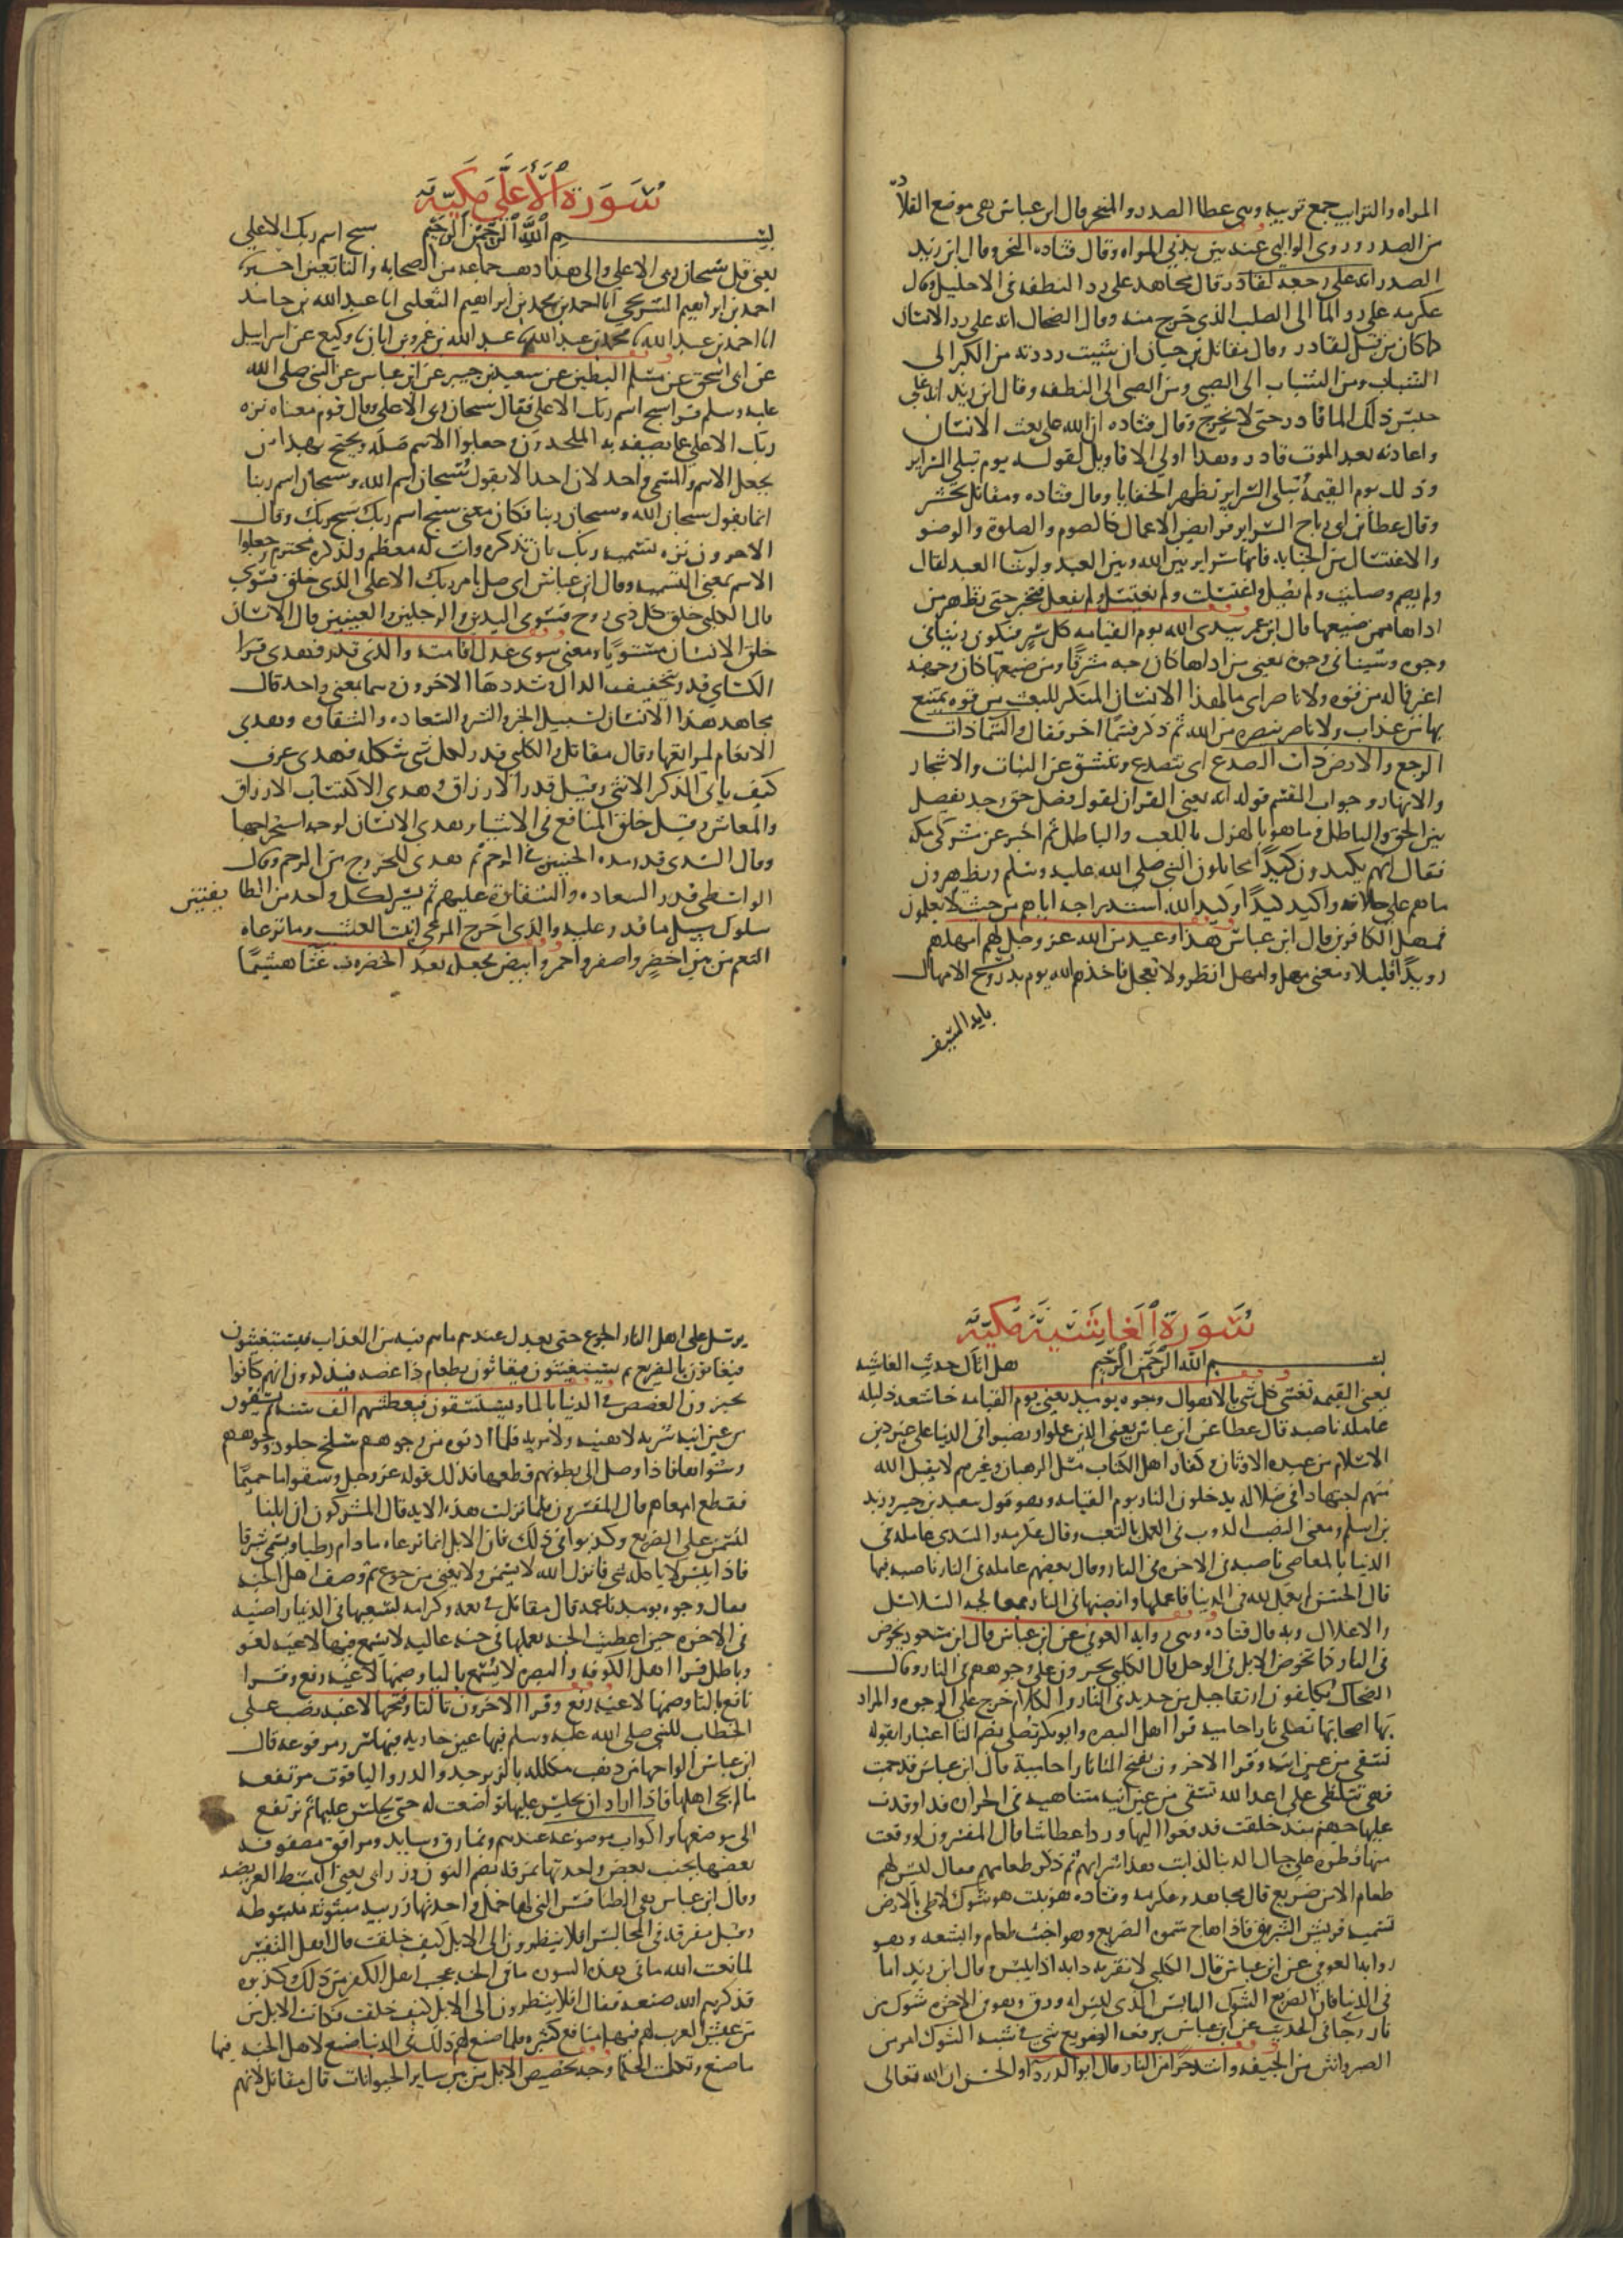 المراه والترايب جمع تريبه وهى عظام الصدر والمنحر قال ابن عباس هى موضع القلادة
من الصدر وروى الوالبى عنه بين يدى المراه وقال قتاده النحر وقال ابن زيد
الصدر انه على رجعه لقادر قال مجاهد على رد النطفه فى الاحليل وقال
عكرمه على رد الما الى الصلب الذى خرج منه وقال الضحاك انه على رد الانسان
كما كان من قبل لقادر وقال مقاتل بن حيان ان شيت رددته من الكبر الى
الشباب ومن الشباب الى الصبى ومن الصبى الى النطفه وقال ابن زيد انه على
حبس ذلك الما قادر حتى لا يخرج وقال قتاده ان الله على بعث الانسان
واعادته بعد الموت قادر وهذا اولى الاقاويل لقوله يوم تبلى السراير
وذلك يوم القيمه تبلى السراير تظهر الخفايا وقال قتاده ومقاتل تختبر
وقال عطا بن ابى رباح السراير فرايض الاعمال كالصوم والصلوة والوضو
والاغتسال من الجنابه فانها سراير بين الله وبين العبد ولو شا العبد لقال
ولم يصم وصليت ولم يصل واغتسلت ولم يغتسل ولم يفعل فتختبر حتى تظهر من
اداها ممن ضيعها قال ابن عمر يبدى الله يوم القيامه كل سر فيكون زينا فى
وجوه وشينا فى وجوه يعنى من اداها كان وجهه مشرقا ومن ضيعها كان وجهه
اغبر فماله من قوه ولا ناصر اى ما لهذا الانسان المنكر للبعث من قوه يمتنع
بها من عذاب ولا ناصر ينصره من الله ثم ذكر قسما اخر فقال والسما ذات
الرجع والارض ذات الصدع اى تتصدع وتنشق عن النبات والاشجار
والانهار وجواب القسم قوله انه يعنى القران لقول فصل حق وجد يفصل
بين الحق والباطل وما هو بالهزل باللعب والباطل ثم اخبر عن مشركى مكه
فقال انهم يكيدون كيدا يحاتلون النبى صلى الله عليه وسلم ويظهرون
ما هم على خلافه واكيد كيدا وكيد الله استدراجه اياهم من حيث لا يعلمون
فمهل الكافرين قال ابن عباس هذا وعيد من الله عز وجل لهم امهلهم
رويدا قليلا ومعنى مهل وامهل انظر ولا تعجل فاخذهم الله يوم بدر ونسخ الامهال
بايه السيف
سورة الأعلى مكية
بسم الله الرحمن الرحيم سبح اسم ربك الاعلى
يعنى قل سبحان ربى الاعلى والى هذا ذهب جماعه من الصحابه والتابعين اخبرنا
احمد بن ابراهيم الشريحى انا احمد بن محمد بن ابراهيم الثعلبى انا عبد الله بن حامد
انا احمد بن عبد الله نا محمد بن عبد الله نا عبد الله بن عمرو بن ابان نا وكيع عن اسراييل
عن ابى اسحق عن مسلم البطين عن سعيد بن جبير عن ابن عباس عن النبى صلى الله
عليه وسلم قرا سبح اسم ربك الاعلى فقال سبحان ربى الاعلى وقال قوم معناه نزه
ربك الاعلى عما يصفه به الملحدون وجعلوا الاسم صله ويحتج بهذا من
يجعل الاسم والمسمى واحد لان احدا لا يقول سبحان اسم الله وسبحان اسم ربنا
انما يقول سبحان الله وسبحان ربنا فكان معنى سبح اسم ربك سبح ربك وقال
الاخرون نزه تسميه ربك بان تذكره وانت له معظم ولذكره محترم وجعلوا
الاسم بمعنى التسميه وقال ابن عباس اى صل بامر ربك الاعلى الذى خلق فسوى
قال الكلبى خلق كل ذى روح فسوى اليدين والرجلين والعينين قال الانسان
خلق الانسان مستويا ومعنى سوى عدل قامته والذى قدر فهدى قرا
الكساى قدر بتخفيف الدال وشددها الاخرون وهما بمعنى واحد قال
مجاهد هذا الانسان لسبيل الخير والشر والسعاده والشقاوه وهدى
الانعام لمراتعها وقال مقاتل والكلبى قدر لكل شى شكله فهدى عرف
كيف ياتى الذكر الانثى وقيل قدر الارزاق وهدى الاكتساب الارزاق
والمعاش وقيل خلق المنافع فى الاشيا وهدى الانسان لوجه استخراجها
وقال السدى قدر مده الجنين فى الرحم ثم هدى للخروج من الرحم وقال
الواسطى قدر السعاده والشقاوة عليهم ثم يسر لكل واحد من الطايفتين
سلوك سبيل ما قدر عليه والذى اخرج المرعى انبت العشب وما ترعاه
النعم من بين اخضر واصفر واحمر وابيض فجعله بعد الخضره غثا هشيما
سورة الغاشية مكية
بسم الله الرحمن الرحيم هل اتاك حديث الغاشيه
يعنى القيمه تغشى كل شى بالاهوال وجوه يوميذ يعنى يوم القيامه خاشعه ذليله
عامله ناصبه قال عطا عن ابن عباس يعنى الذين عملوا ونصبوا فى الدنيا على غير دين
الاسلام من عبده الاوثان وكفار اهل الكتاب مثل الرهبان وغيرهم لا يقبل الله
منهم اجتهادا فى ضلاله يدخلون النار يوم القيامه وهو قول سعيد بن جبير وزيد
بن اسلم ومعنى النصب الدوب فى العمل بالتعب وقال عكرمه والسدى عامله فى
الدنيا بالمعاصى ناصبه فى الاخره فى النار وقال بعضهم عامله فى النار ناصبه فيها
قال الحسن لم يعمل لله فى الدنيا فاعملها وانصبها فى النار بمعالجه السلاسل
والاغلال وبه قال قتاده وهى روايه العوفى عن ابن عباس قال ابن مسعود يخوض
فى النار كما تخوض الابل فى الوحل قال الكلبى يجرون على وجوههم فى النار وقال
الضحاك يكلفون ارتقا جبل من حديد فى النار والكلام خرج على الوجوه والمراد
بها اصحابها تصلى نارا حاميه قرا اهل البصره وابو بكر تصلى بضم التا اعتبارا بقوله
تسقى من عين انيه وقرا الاخرون بفتح التا نارا حامية قال ابن عباس قد حميت
فهى تتلظى على اعدا الله تسقى من عين انيه متناهيه فى الحراره قد اوقدت
عليها جهنم منذ خلقت فدفعوا اليها وردا عطاشا قال المفسرون لو وقعت
منها قطره على جبال الدنيا لذابت هذا شرابهم ثم ذكر طعامهم فقال ليس لهم
طعام الا من ضريع قال مجاهد وعكرمه وقتاده هو نبت ذو شوك لاطى بالارض
تسميه قريش الشبرق فاذا هاج سموه الضريع وهو اخبث طعام وابشعه وهو
روايه العوفى عن ابن عباس قال الكلبى لا تقربه دابه اذا يبس وقال ابن زيد اما
فى الدنيا فان الضريع الشوك اليابس الذى ليس له ورق وهو فى الاخره شوك من
نار وجا فى الحديث عن ابن عباس يرفعه الضريع شى فى النار شبه الشوك امر من
الصبر وانتن من الجيفه واشد حرا من النار قال ابو الدردا والحسن ان الله تعالى
يرسل على اهل النار الجوع حتى يعدل عندهم ما هم فيه من العذاب فيستغيثون
فيغاثون بالضريع ثم يستغيثون فيغاثون بطعام ذا غصه فيذكرون انهم كانوا
يجيزون الغصص فى الدنيا بالما ويستسقون فيعطشهم الف سنه ثم يسقون
من عين انيه شربه لا هنيه ولا مريه فلما ادنوه من وجوههم سلخ جلود وجوههم
وشواها فاذا وصل الى بطونهم قطعها فذلك قوله عز وجل وسقوا ما حميما
فقطع امعاهم قال المفسرون فلما نزلت هذه الايه قال المشركون ان ابلنا
لتسمن على الضريع وكذبوا فى ذلك فان الابل انما ترعاه ما دام رطبا ويسمى شبرقا
فاذا يبس لا ياكله شى فانزل الله لا يسمن ولا يغنى من جوع ثم وصف اهل الجنه
فقال وجوه يوميذ ناعمه قال مقاتل فى نعمه وكرامه لسعيها فى الدنيا راضيه
فى الاخره حين اعطيت الجنه بعملها فى جنه عاليه لا يسمع فيها لاغيه لغو
وباطل قرا اهل الكوفه والبصره لا يسمع باليا وضمها لاغيه رفع وقرا
نافع بالتا وضمها لاغيه رفع وقرا الاخرون بالتا وفتحها لاغيه نصب على
الخطاب للنبى صلى الله عليه وسلم فيها عين جاريه فيها سرر مرفوعه قال
ابن عباس الواحها من ذهب مكلله بالزبرجد والدر والياقوت مرتفعه
ما لم يجى اهلها فاذا اراد ان يجلس عليها تواضعت له حتى يجلس عليها ثم ترتفع
الى موضعها واكواب موضوعه عندهم ونمارق وسايد ومرافق مصفوفه
بعضها بجنب بعض واحدتها نمرقه بضم النون وزرابى يعنى البسط العريضه
وقال ابن عباس هى الطنافس التى لها خمل واحدتها زربيه مبثوثه مبسوطه
وقيل متفرقه فى المجالس افلا ينظرون الى الابل كيف خلقت قال اهل التفسير
لما نعت الله ما فى هذه السوره ما فى الجنه عجب اهل الكفر من ذلك وكذبوه
فذكرهم الله صنعه فقال افلا ينظرون الى الابل كيف خلقت وكانت الابل من
من عيش العرب لهم فيها منافع كثيره فلما صنع لهم ذلك فى الدنيا صنع لاهل الجنه فيها
ما صنع وتكلمت الحكما وجه تخصيص الابل من بين ساير الحيوانات قال مقاتل لانهم